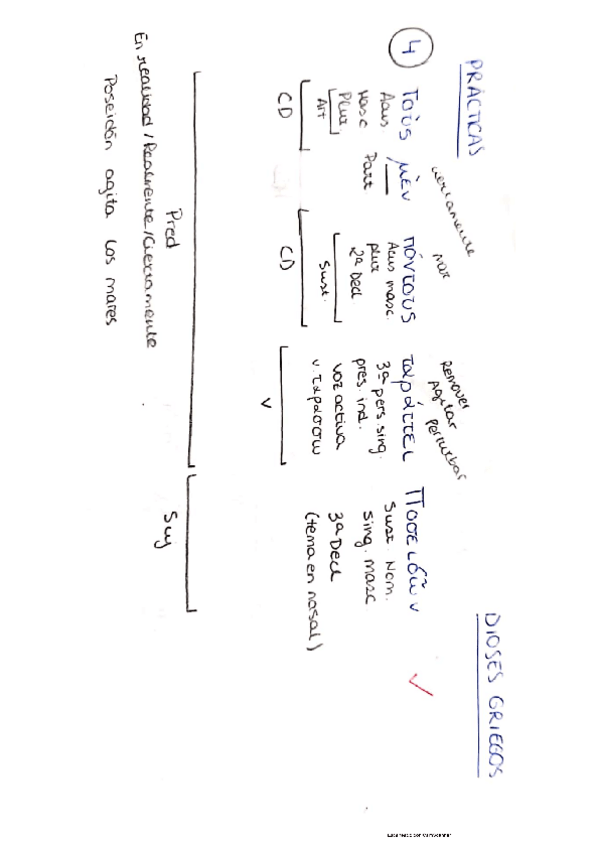 PRÁCTICAS
DIOSES GRIEGOS
ciertamente mar Remover Agitar Perturbar
4 Τοὺς μὲν πόντους ταράττει Ποσειδῶν
Acus Part Acus masc. 3ª pers. sing. Sust. Nom.
Masc plur pres. ind. sing. masc
Plur. 2ª Decl voz activa 3ª Decl
Art Sust. v. ταράσσω (tema en nasal)
CD CD V
Pred Suj
En realidad / Realmente / Ciertamente
Poseidón agita los mares